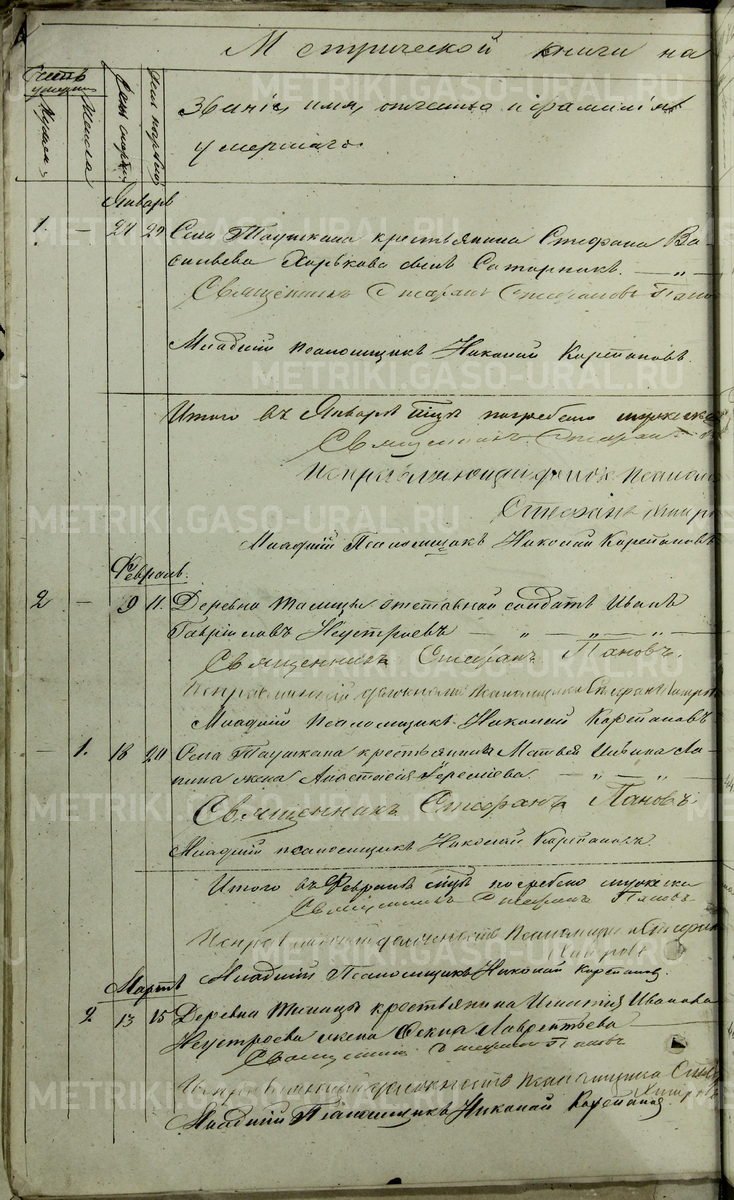 Метрической книги на
Счетъ умершихъ
Мужска
Женска
День смерти
День погреб.
Званіе, имя, отчество и фамилія
умершаго.
Январь
1. — 27 29 Села Таушкана крестьянина Стефана Ва-
сильева Харькова сынъ Сатарникъ. — „ —
Священникъ Стефанъ Стефановъ Пано
Младшій псаломщикъ Николай Карпановъ.
Итого въ Январѣ мцѣ погребено мужска
Священникъ Стефан
Исправляющій должн. Псалом
Стефанъ
Младшій Псаломщикъ Николай Карпановъ
Февраль.
2 — 9 11. Деревни Талицы отставной солдатъ Иванъ
Гавріиловъ Неустроевъ — „ — „ — „ —
Священникъ Стефанъ Пановъ.
Исправляющій должность псаломщика Стефанъ
Младшій псаломщикъ Николай Карпановъ
— 1. 18 20 Села Таушкана крестьянина Матвея Ильина Ла-
пина жена Анастасія Еремѣева. — „ —
Священникъ Стефанъ Пановъ.
Младшій псаломщикъ Николай Карпановъ.
Итого въ Февралѣ мцѣ погребено мужска
Священникъ Стефанъ Пановъ
Исправляющій должность Псаломщика Стефанъ
Хитровъ
Младшій Псаломщикъ Николай Карпановъ
Мартъ
2 13 15 Деревни Талицы крестьянина Игнатія Иванова
Неустроева жена Фекла Лаврентьева
Священникъ Стефанъ Пановъ
Исправляющій должность псаломщика Стеф
Хитровъ
Младшій Псаломщикъ Николай Карпановъ
METRIKI.GASO-URAL.RU